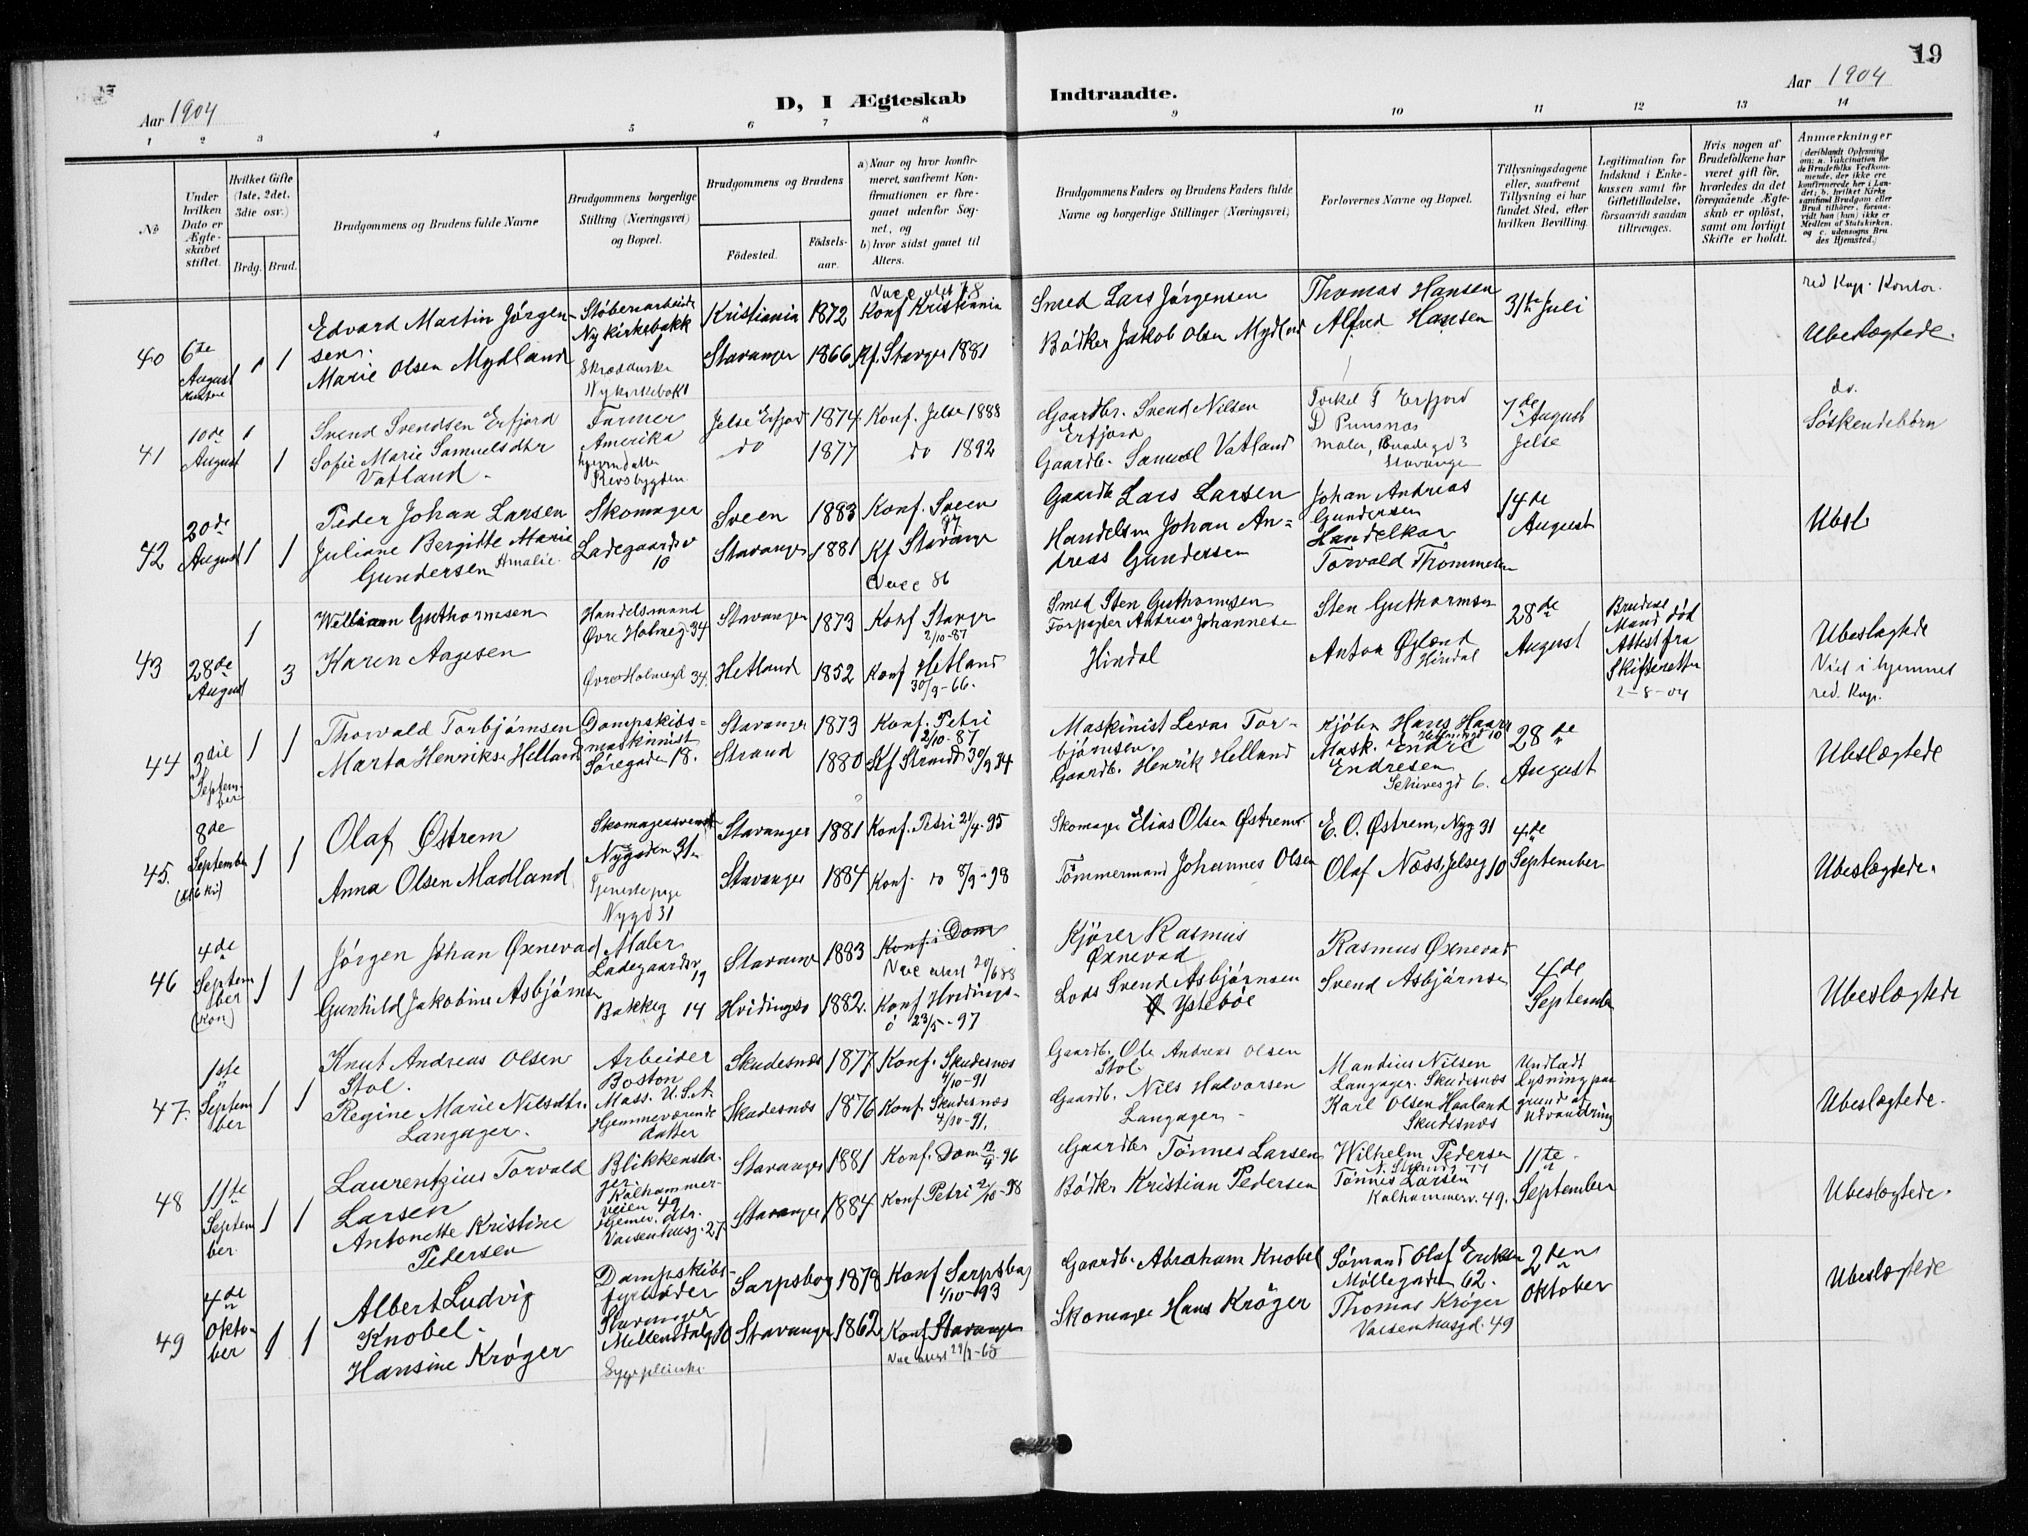 19
Aar 1904
D, I Ægteskab Indtraadte.
Aar 1904
1 2 3 4 5 6 7 8 9 10 11 12 13 14
No
Under hvilken Dato er Ægteskabet stiftet.
Hvilket Gifte (1ste, 2det, 3die osv.)
Brdg. Brud.
Brudgommens og Brudens fulde Navne
Brudgommens borgerlige Stilling (Næringsvei) og Bopæl.
Brudgommens og Brudens
Födested.
Födsels-aar.
a) Naar og hvor konfirmeret, saafremt Konfirmationen er foregaaet udenfor Sognet, og
b) hvor sidst gaaet til Alters.
Brudgommens Faders og Brudens Faders fulde Navne og borgerlige Stillinger (Næringsvei)
Forlovernes Navne og Bopæl.
Tillysningsdagene eller, saafremt Tillysning ei har fundet Sted, efter hvilken Bevilling.
Legitimation for Indskud i Enkekassen samt for Giftetilladelse, forsaavidt saadan tiltrænges.
Hvis nogen af Brudefolkene har været gift för, hvorledes da det foregaaende Ægteskab er oplöst, samt om lovligt Skifte er holdt.
Anmærkninger
40 6te August 1 1
Edvard Martin Jørgensen.
Marie Olsen Mydland
Støberiarbeide Nykirkebakk 1
Nykirkebak 1
Kristiania 1872 Konf Kristiania
Stavanger 1866 Kf. Stavger 1881
Smed Lars Jørgensen
Bødker Jakob Olsen Mydland
Thomas Hansen
Alfred Hansen
31te Juli
red Kap. Kontor.
Ubeslægtede.
41 10de August 1 1
Svend Svendsen Erfjord
Sofie Marie Samuelsdtr Vatland
Farmer Amerika
Hjemdatter
Jelse Erfjord 1874 Konf. Jelse 1888
do 1877 do 1892
Gaardbr. Svend Nilsen Erfjord
Gaardb. Samuel Vatland
Torkel T Erfjord
Stavanger
7de August Jelse
do.
Søskendebørn
42 20de August 1 1
Peder Johan Larsen
Juliane Bergitte Marie Amalie Gundersen
Skomager
Ladegaardsv 10
Sveen 1883 Konf. Sveen 97
Stavanger 1881 Kf Stavange
Vacc 86
Gaardb Lars Larsen
Handelsm Johan Andreas Gundersen
Johan Andreas Gundersen
Handelkar
Torvald Thommesen
14de August
Ubesl
43 28de August 1 3
William Guthormsen
Karen Aagesen
Handelsmand Øvre Holmeg 34
Øvre Holmegd 34.
Stavanger 1873 Konf Stavger 2/10-87
Hetland 1852 Konf Hetland 30/9-66.
Smed Sten Guthormsen
Forpagter Andreas Johannesen Hindal
Sten Guthormsen
Anton Øglænd Hindal
28de August
Brudens Mand død Attest fra Skifteretten 2-8-04
Ubeslægtede
Viet i hjemmet red. Kap.
44 3die September 1 1
Thorvald Torbjørnsen
Marta Henriks. Helland
Dampskibsmaskinist Søregaden 18.
Stavanger 1873 Konf. Petri 2/10-87
Strand 1880 Kf Strand 30/9 94
Maskinist Levar Torbjørnsen.
Gaardb. Henrik Helland
Kjøbm Hans Haar
Mask. Endre Endresen
Schivesgd 6.
28de August
Ubeslægtede
45. 8de September 1 1
Olaf Østrem
Anna Olsen Madland
Skomagersvend Nygaden 31.
Tjenestepige Nygd 31
Stavanger 1881 Konf. Petri 21/4-95
Stavanger 1884 Konf. do 8/9-98
Skomager Elias Olsen Østrem.
Tømmermand Johannes Olsen
E. O. Østrem, Nyg 31
Olaf Næss, Jelseg 10
4de September
Ubeslægtede.
46 4de September 1 1
Jørgen Johan Øxnevad
Gunhild Jakobine Asbjørnsen
Maler Ladegaardsv 19
Bakkeg 14
Stavange 1883 Konf. i Dom
Vacc attest 20/6 88
Hvidingsø 1882. Konf Hvidingsø 23/5-97
Kjører Rasmus Øxnevad
Lods Svend Asbjørnsen Ystebøe
Rasmus Øxnevad
Svend Asbjørnsen
4de September
Ubeslægtede
47. 1ste September 1 1
Knut Andreas Olsen Stol.
Regine Marie Nilsdtr. Langager.
Arbeider Boston Mass. U.S.A.
Hjemmeværende datter
Skudesnæs 1877 Konf. Skudesnæs 4/10-91
Skudesnæs 1876 Konf. Skudesnæs 4/10-91.
Gaardb. Ole Andreas Olsen Stol.
Gaardb. Nils Halvorsen Langager
Mandius Nilsen Langager. Skudesnæs
Karl Olsen Haaland Skudesnæs
Undladt Lysning paa grund af Udvandring
Ubeslægtede.
48 11te September 1 1
Laurentzius Torvald Larsen
Antonette Kristine Pedersen
Blikkenslager Kalhammerveien 49
Hjemev. dtr. Vaisenhusg. 27
Stavanger 1881 Konf. Dom 12/4-96
Stavanger 1884 Konf. Petri 2/10-98
Gaardbr Tønnes Larsen
Bødker Kristian Pedersen
Wilhelm Pedersen
Tønnes Larsen Kalhammerv. 49.
11te September
Ubeslægtede.
49 4de Oktober 1 1
Albert Ludvig Knobel.
Hansine Krøger
Dampskibsfyrbøder Stavanger
Møllendalg 10
Sygepleierske
Sarpsborg 1878 Konf Sarpsborg 1/10-93
Stavanger 1862 Konf Stavange
Gaardb. Abraham Knobel
Skomager Hans Krøger
Sømand Olaf Eriksen Møllegaden 62.
Thomas Krøger Vaisenhusgd. 49
2den Oktober
Ubeslægtede